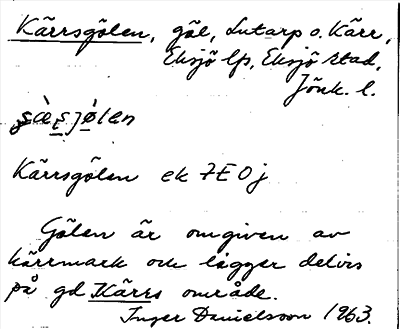 Kärrsgölen, göl, Lutarp o. Kärr,
Eksjö lfs, Eksjö stad,
Jönk. l.
Kärrsgölen ek 7E0j
Gölen är omgiven av
kärrmark och ligger delvis
på gd Kärrs område.
Inger Danielsson 1963.